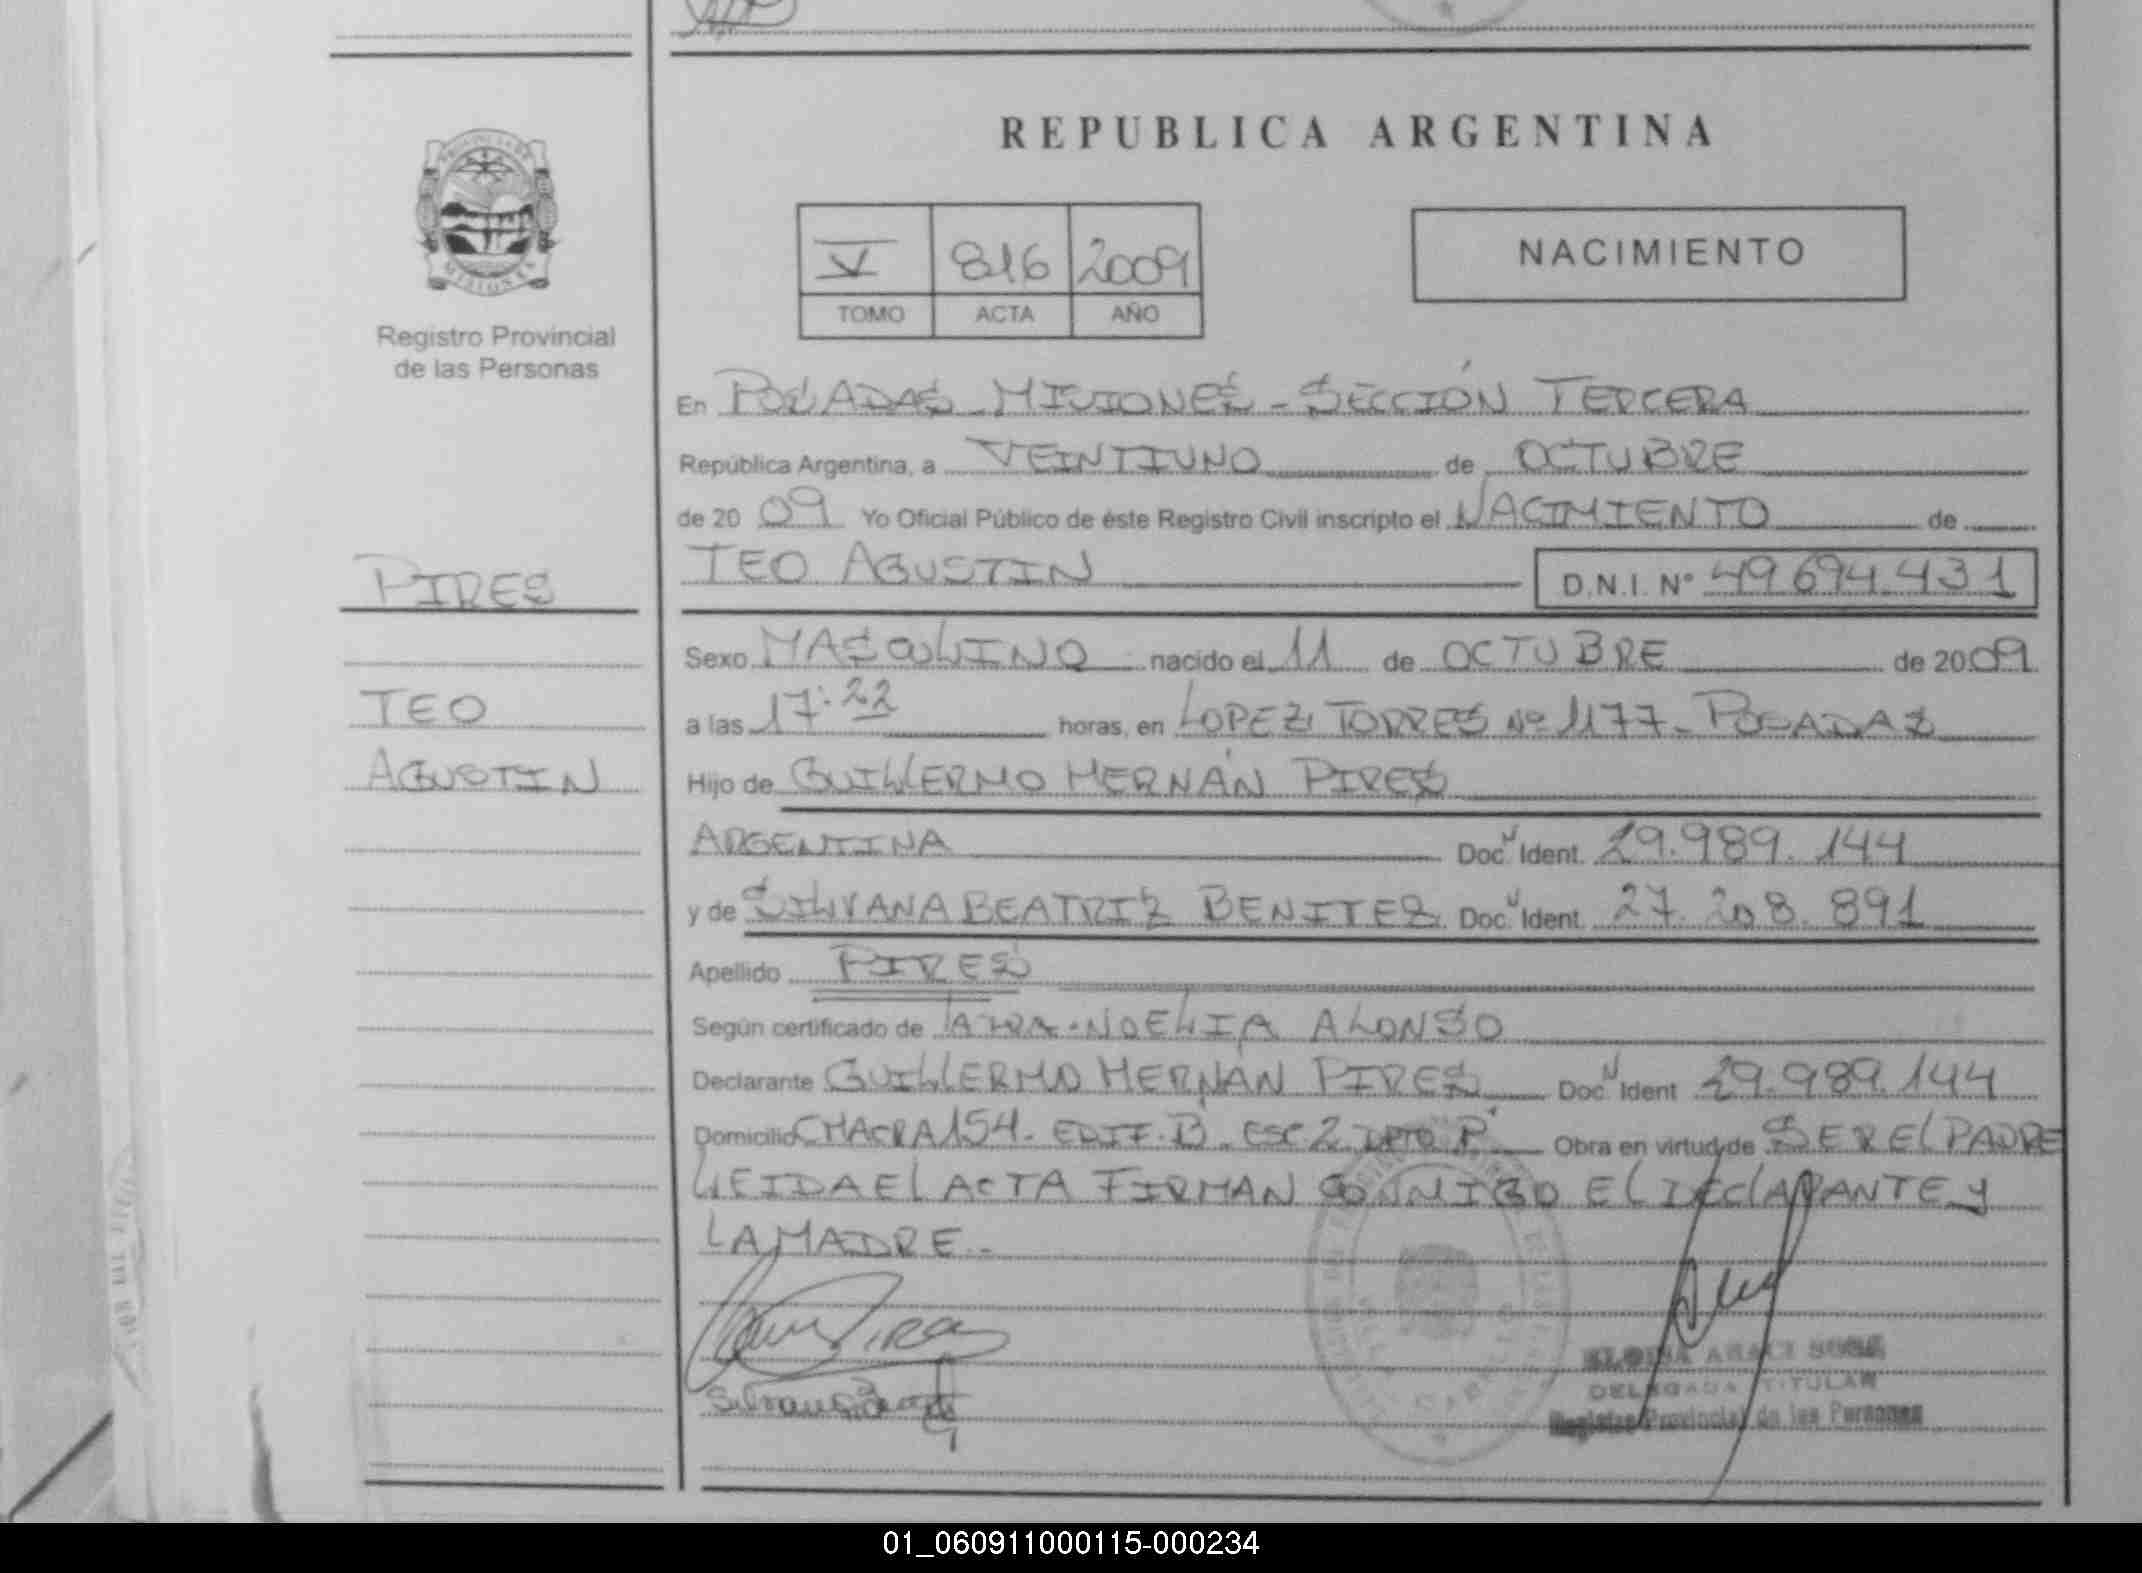 REPUBLICA ARGENTINA
V 816 2009
TOMO ACTA AÑO
NACIMIENTO
MISIONES
Registro Provincial
de las Personas
PIRES
TEO
AGUSTIN
En POSADAS - MISIONES - SECCIÓN TERCERA
República Argentina, a VEINTIUNO de OCTUBRE
de 2009 Yo Oficial Público de éste Registro Civil inscripto el NACIMIENTO de
TEO AGUSTIN D.N.I. N° 49.694.431
Sexo MASCULINO nacido el 11 de OCTUBRE de 2009
a las 17:22 horas, en LOPEZ TORRES Nº 1177 - POSADAS
Hijo de GUILLERMO HERNÁN PIRES
ARGENTINA Doc. Ident. 29.989.144
y de SILVANA BEATRIZ BENITEZ Doc. Ident. 27.208.891
Apellido PIRES
Según certificado de NOELIA ALONSO
Declarante GUILLERMO HERNÁN PIRES Doc. Ident 29.989.144
Domicilio CHACRA 154. EDIF. B. ESC 2 DPTO P Obra en virtud de SER EL PADRE
LEIDA EL ACTA FIRMAN CONMIGO EL DECLARANTE Y
LA MADRE.-
ARACI SOSA
DELEGADA TITULAR
Registro Provincial de las Personas
01_060911000115-000234